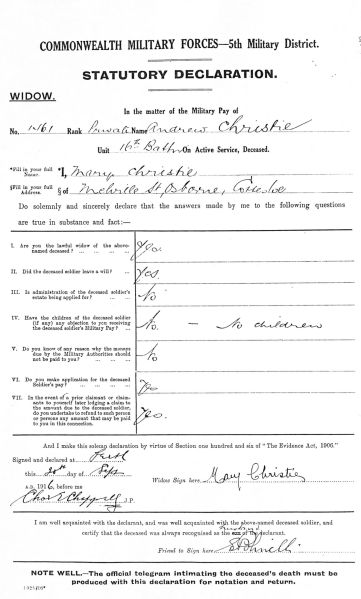 COMMONWEALTH MILITARY FORCES—5th Military District.
STATUTORY DECLARATION.
WIDOW.
In the matter of the Military Pay of
No. Rank Private Name Andrew Christie
Unit 16th Battn On Active Service, Deceased.
*Fill in your full Name. *I, Mary Christie
§Fill in your full Address. § of Melville St, Osborne,
Do solemnly and sincerely declare that the answers made by me to the following questions
are true in substance and fact:—
I. Are you the lawful widow of the above-
named deceased? Yes.
II. Did the deceased soldier leave a will? Yes.
III. Is administration of the deceased soldier's
estate being applied for? No
IV. Have the children of the deceased soldier
(if any) any objection to you receiving
the deceased soldier's Military Pay? No — No children
V. Do you know of any reason why the moneys
due by the Military Authorities should
not be paid to you? No
VI. Do you make application for the deceased
Soldier's pay? Yes
VII. In the event of a prior claimant or claim-
ants to yourself later lodging a claim to
the amount due to the deceased soldier,
do you undertake to refund to such person
or persons any amount that may be paid
to you in this connection. Yes.
And I make this solemn declaration by virtue of Section one hundred and six of "The Evidence Act, 1906."
Signed and declared at Perth
this day of Sept
A.D. 1916, before me
Widow Sign here Mary Christie
J.P.
I am well acquainted with the declarant, and was well acquainted with the above-named deceased soldier, and
husband
certify that the deceased was always recognised as the of the declarant.
Friend to Sign here
NOTE WELL.—The official telegram intimating the deceased's death must be
produced with this declaration for notation and return.